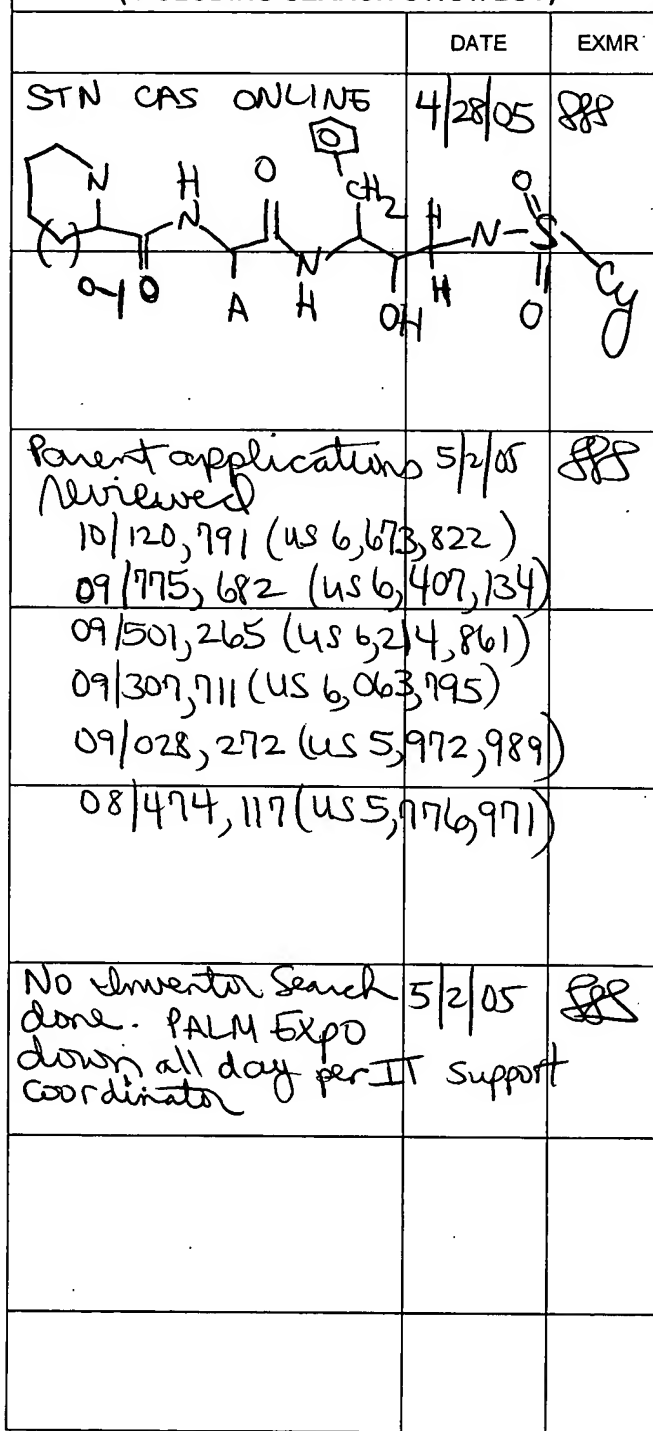 DATE EXMR
STN CAS ONLINE 4/28/05
O
N H N O CH2 H N O S
( ) 0-1 O A N H OH H O Cy
Parent applications 5/2/05
reviewed
10/120,791 (US 6,673,822)
09/775,682 (US 6,407,134)
09/501,265 (US 6,214,861)
09/307,711 (US 6,063,795)
09/028,272 (US 5,972,989)
08/474,117 (US 5,776,971)
No Inventor Search 5/2/05
done. PALM EXPO
down all day per IT support
coordinator